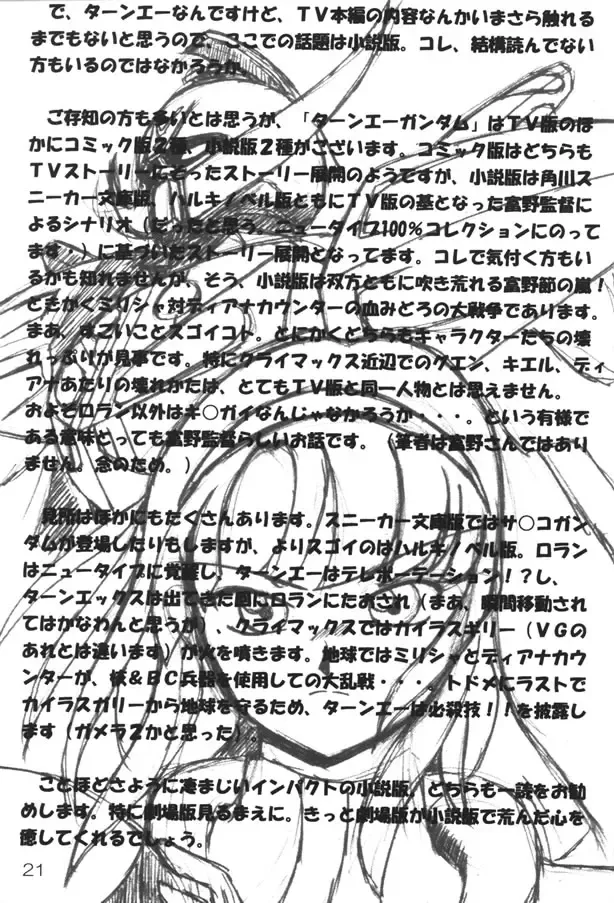 で、ターンエーなんですけど、TV本編の内容なんかいまさら触れる
までもないと思うので、ここでの話題は小説版。コレ、結構読んでない
方もいるのではなかろうか。
ご存知の方も多いとは思うが、「ターンエーガンダム」はTV版のほ
かにコミック版2種、小説版2種がございます。コミック版はどちらも
TVストーリーにそったストーリー展開のようですが、小説版は角川ス
ニーカー文庫版、ハルキノベル版ともにTV版の基となった富野監督に
よるシナリオ（だったと思う。ニュータイプ100%コレクションにのって
ます）に基づいたストーリー展開となってます。コレで気付く方もい
るかも知れませんが、そう、小説版は双方ともに吹き荒れる富野節の嵐！
ときかくミリシャ対ディアナカウンターの血みどろの大戦争であります。
まあ、すごいことスゴイコト。とにかくどちらもキャラクターたちの壊
れっぷりが見事です。特にクライマックス近辺でのグエン、キエル、ディ
アナあたりの壊れかたは、とてもTV版と同一人物とは思えません。
およそロラン以外はキ○ガイなんじゃなかろうか・・・。という有様で
ある意味とっても富野監督らしいお話です。（筆者は富野さんではあり
ません。念のため。）
見所はほかにもたくさんあります。スニーカー文庫版ではサ○コガン
ダムが登場したりもしますが、よりスゴイのはハルキノベル版。ロラン
はニュータイプに覚醒し、ターンエーはテレポーテーション！？し、
ターンエックスは出てきた割にロランにたおされ（まあ、瞬間移動され
てはかなわんと思うが）、クライマックスではカイラスギリー（VGの
あれとは違います）が火を噴きます。地球ではミリシャとディアナカウ
ンターが、核&BC兵器を使用しての大乱戦・・・。トドメにラストで
カイラスガリーから地球を守るため、ターンエーは必殺技！！を披露し
ます（ガメラ2かと思った）。
ことほどさように凄まじいインパクトの小説版、どちらも一読をお勧
めします。特に劇場版見るまえに。きっと劇場版が小説版で荒んだ心を
癒してくれるでしょう。
21